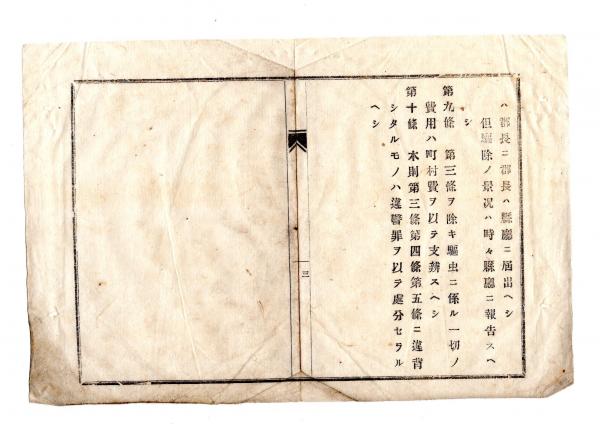 ハ郡長ニ郡長ハ縣廳ニ屆出ヘシ
但驅除ノ景况ハ時々縣廳ニ報告スヘ
シ
第九條 第三條ヲ除キ驅虫ニ係ル一切ノ
費用ハ町村費ヲ以テ支辨スヘシ
第十條 本則第三條第四條第五條ニ違背
シタルモノハ違警罪ヲ以テ處分セラル
ヘシ
三